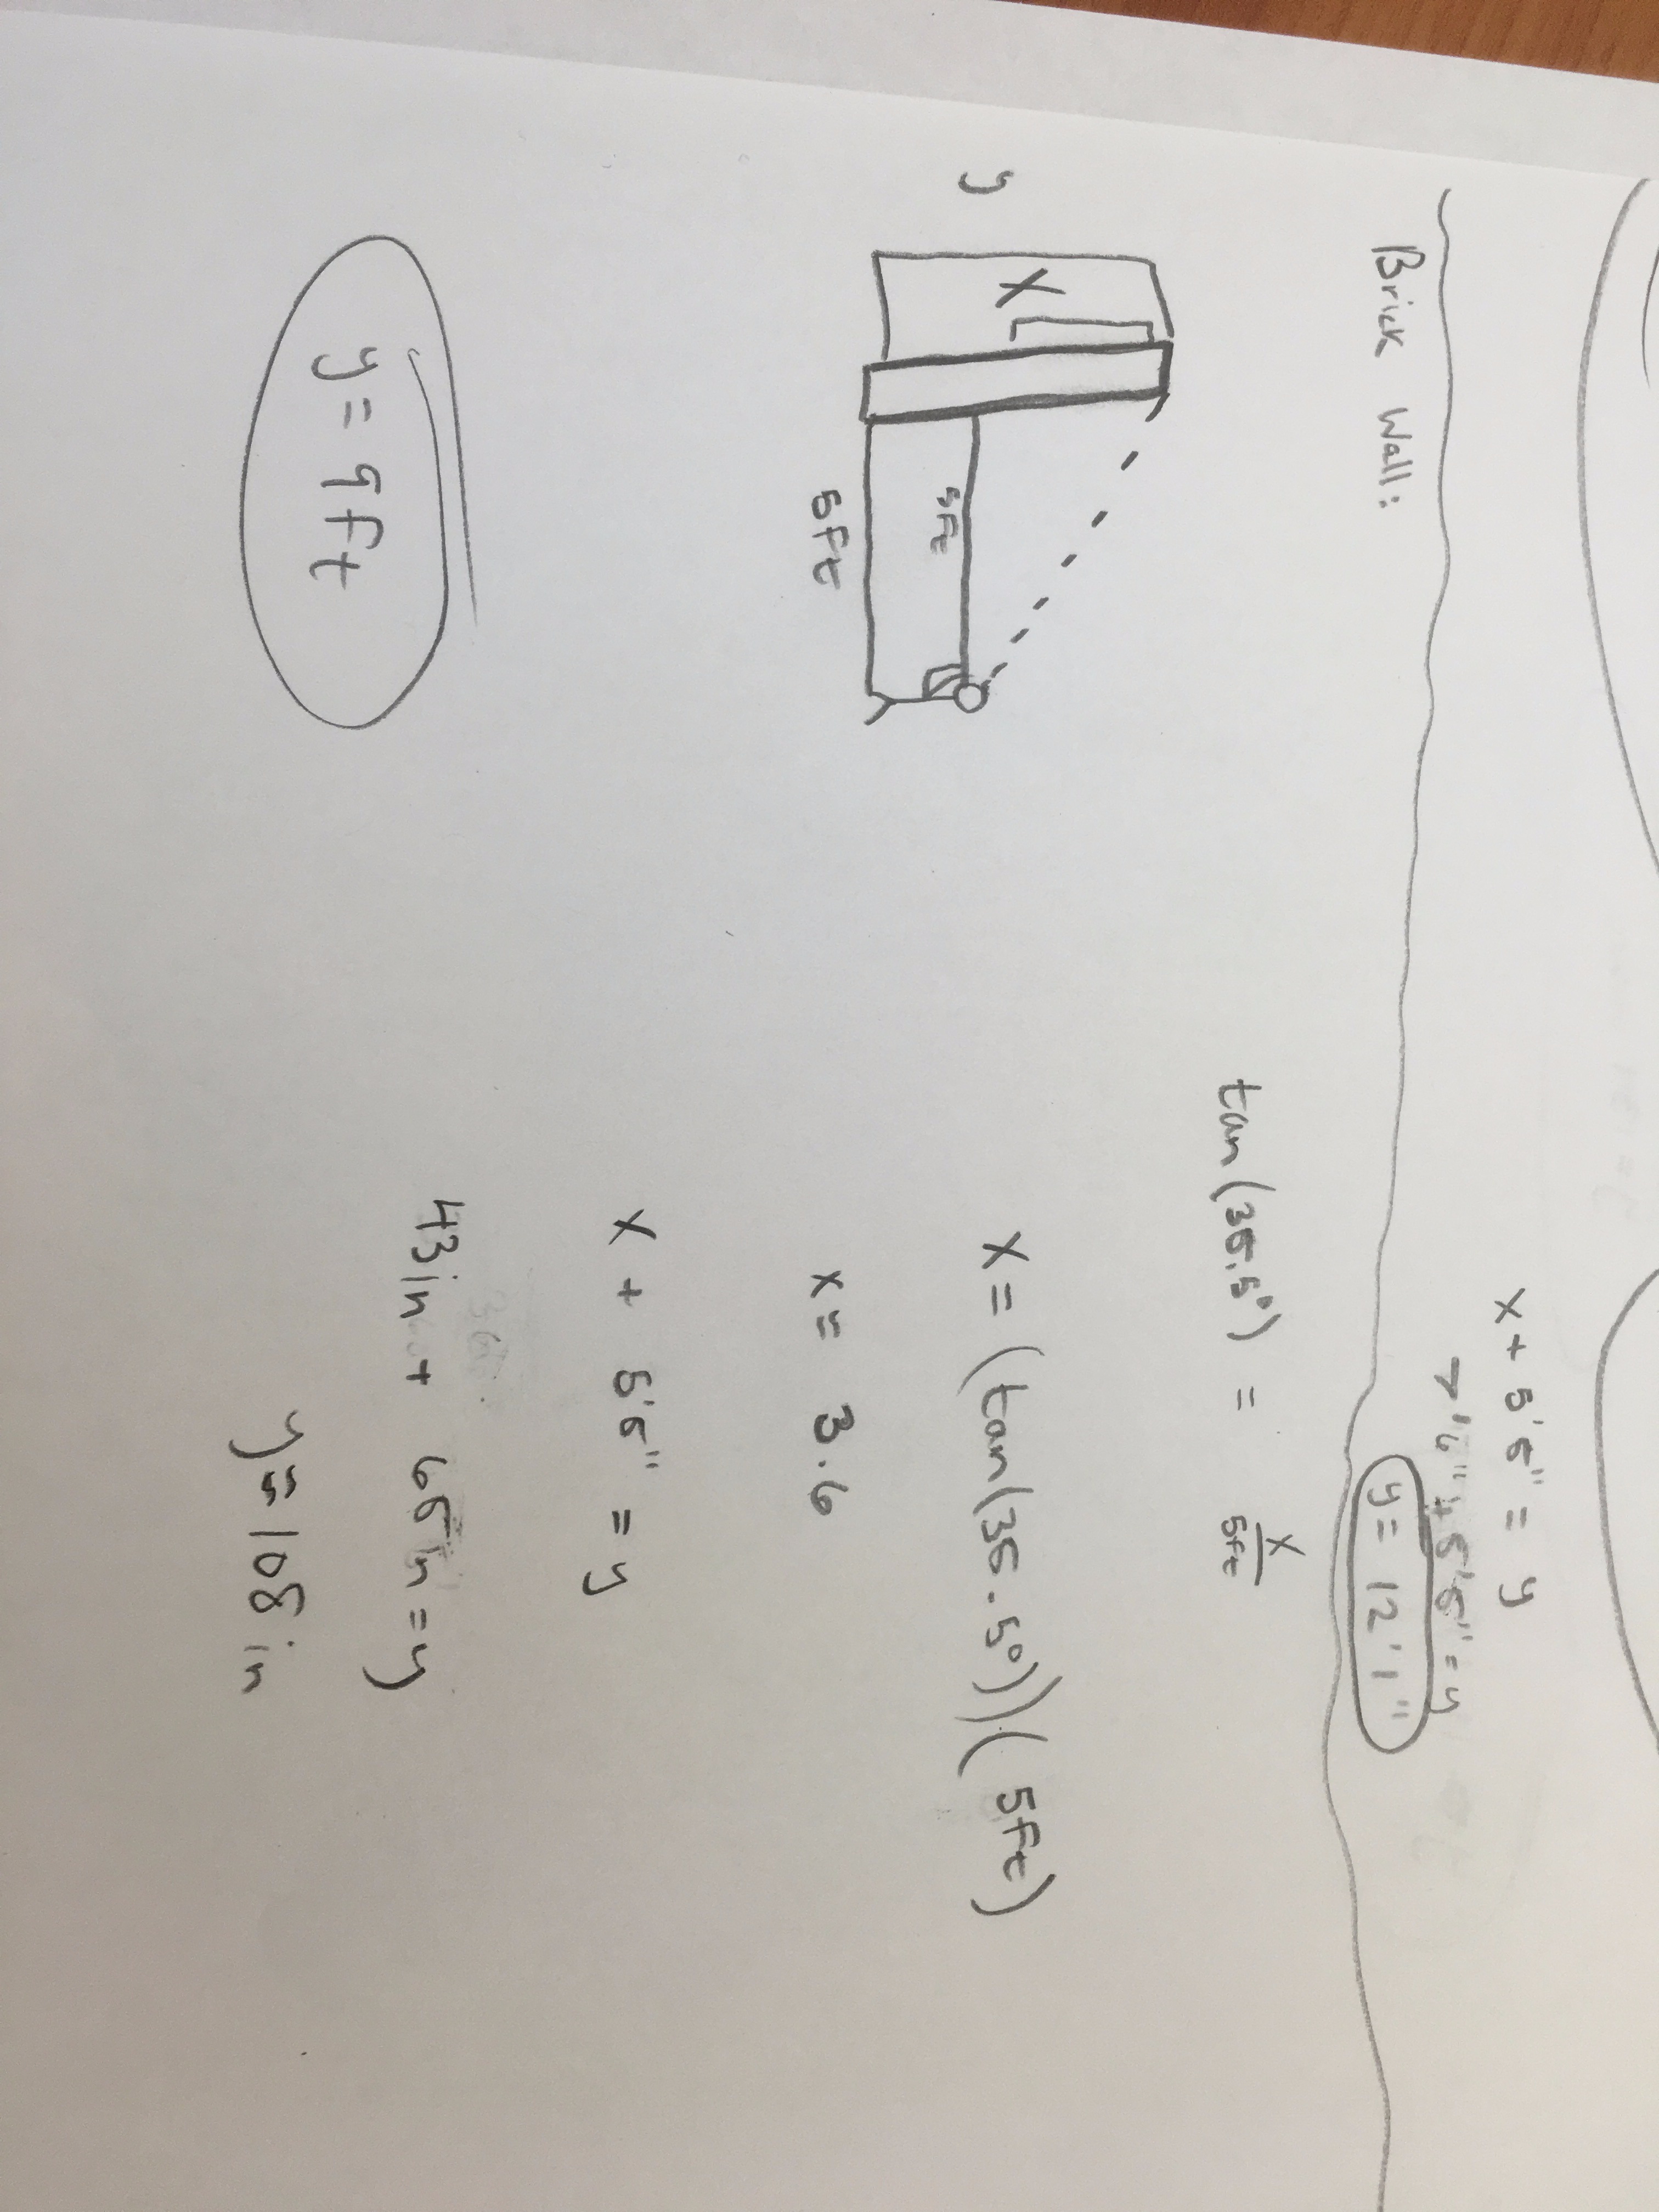 x + 5'5" = y
7'6" + 5'5" = y
y = 12'1"
Brick Wall:
tan(35.5°) = x/5ft
y
x
5ft
5ft
x = (tan(35.5°))(5ft)
x = 3.6
x + 5'5" = y
43in + 65in = y
y = 108 in
y = 9ft